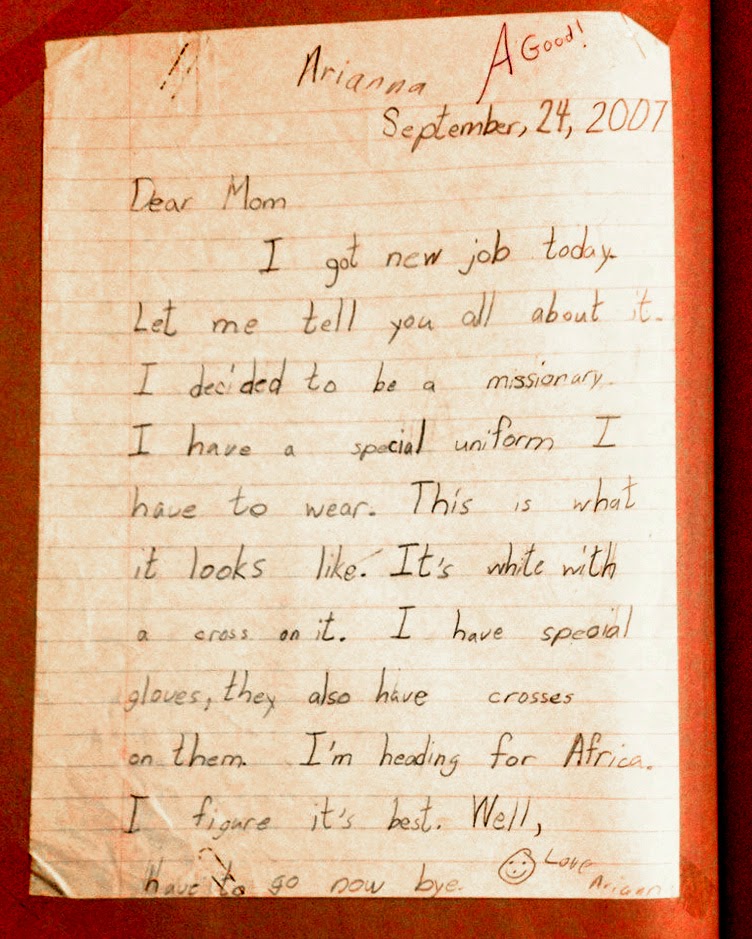 A Good!
Arianna
September, 24, 2007
Dear Mom
I got new job today.
Let me tell you all about it.
I decided to be a missionary.
I have a special uniform I
have to wear. This is what
it looks like. It's white with
a cross on it. I have special
gloves, they also have crosses
on them. I'm heading for Africa.
I figure it's best. Well,
have to go now bye. Love
Ariann